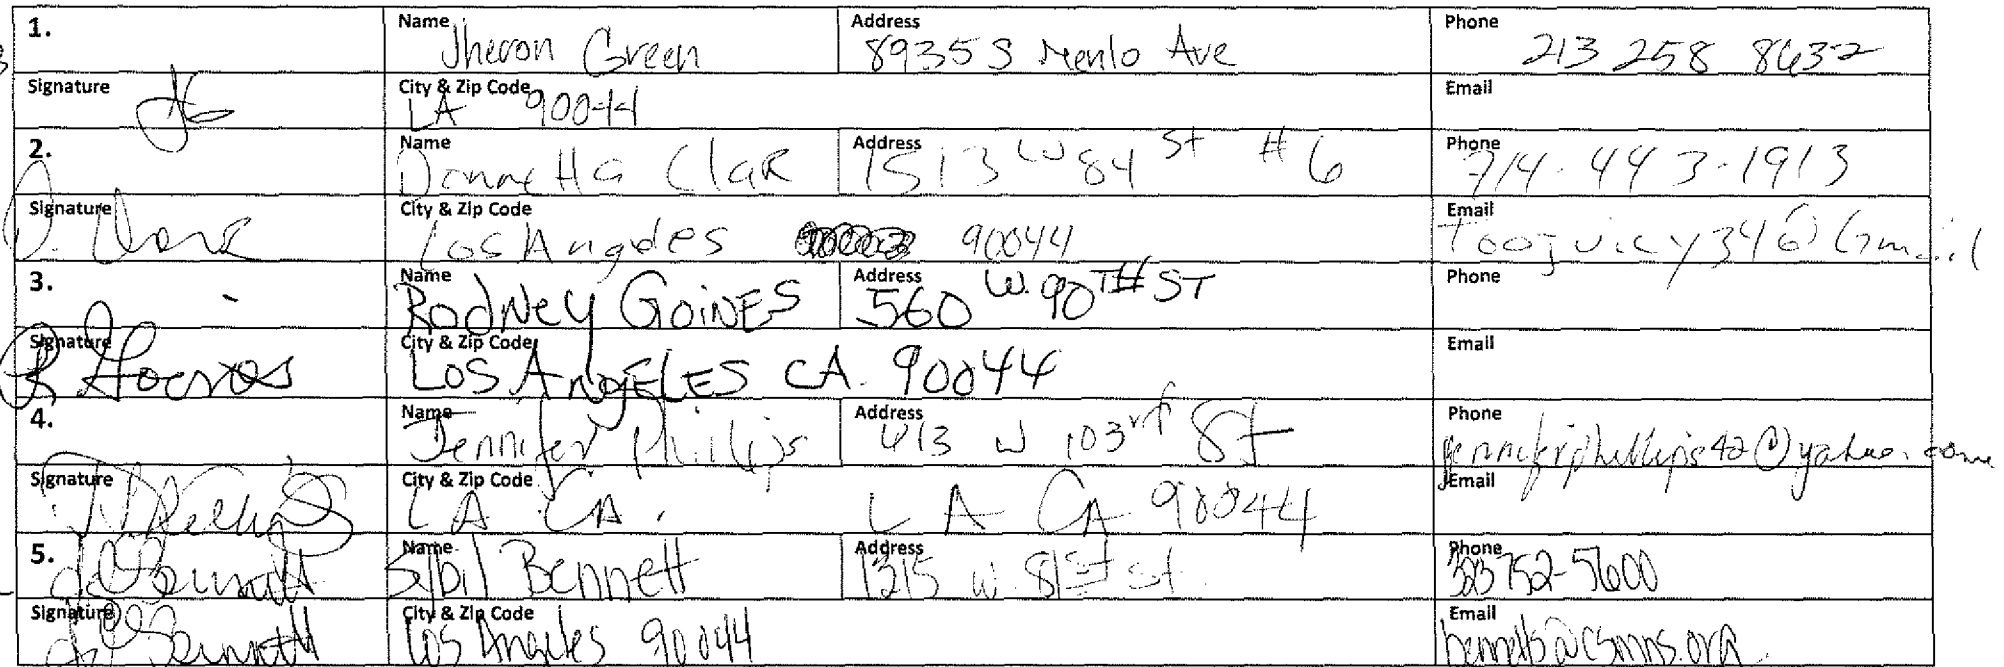 1. Name Jheron Green Address 8935 S Menlo Ave Phone 213 258 8632
Signature City & Zip Code LA 90044 Email
2. Name Donnetta Clar Address 1513 W 84 St # 6 Phone 714-443-1913
Signature D. Clark City & Zip Code Los Angeles 90044 Email toojuicy346@Gmail
3. Name Rodney Goines Address 560 W. 90TH ST Phone
Signature R Goines City & Zip Code Los Angeles CA. 90044 Email
4. Name Jennifer Phillips Address W 103rd St Phone jenniferphillips42@yahoo.com
Signature City & Zip Code LA CA. LA CA 90044 Email
5. Name Sybil Bennett Address 1315 W 81st St. Phone 323 752-5600
Signature City & Zip Code Los Angeles 90044 Email